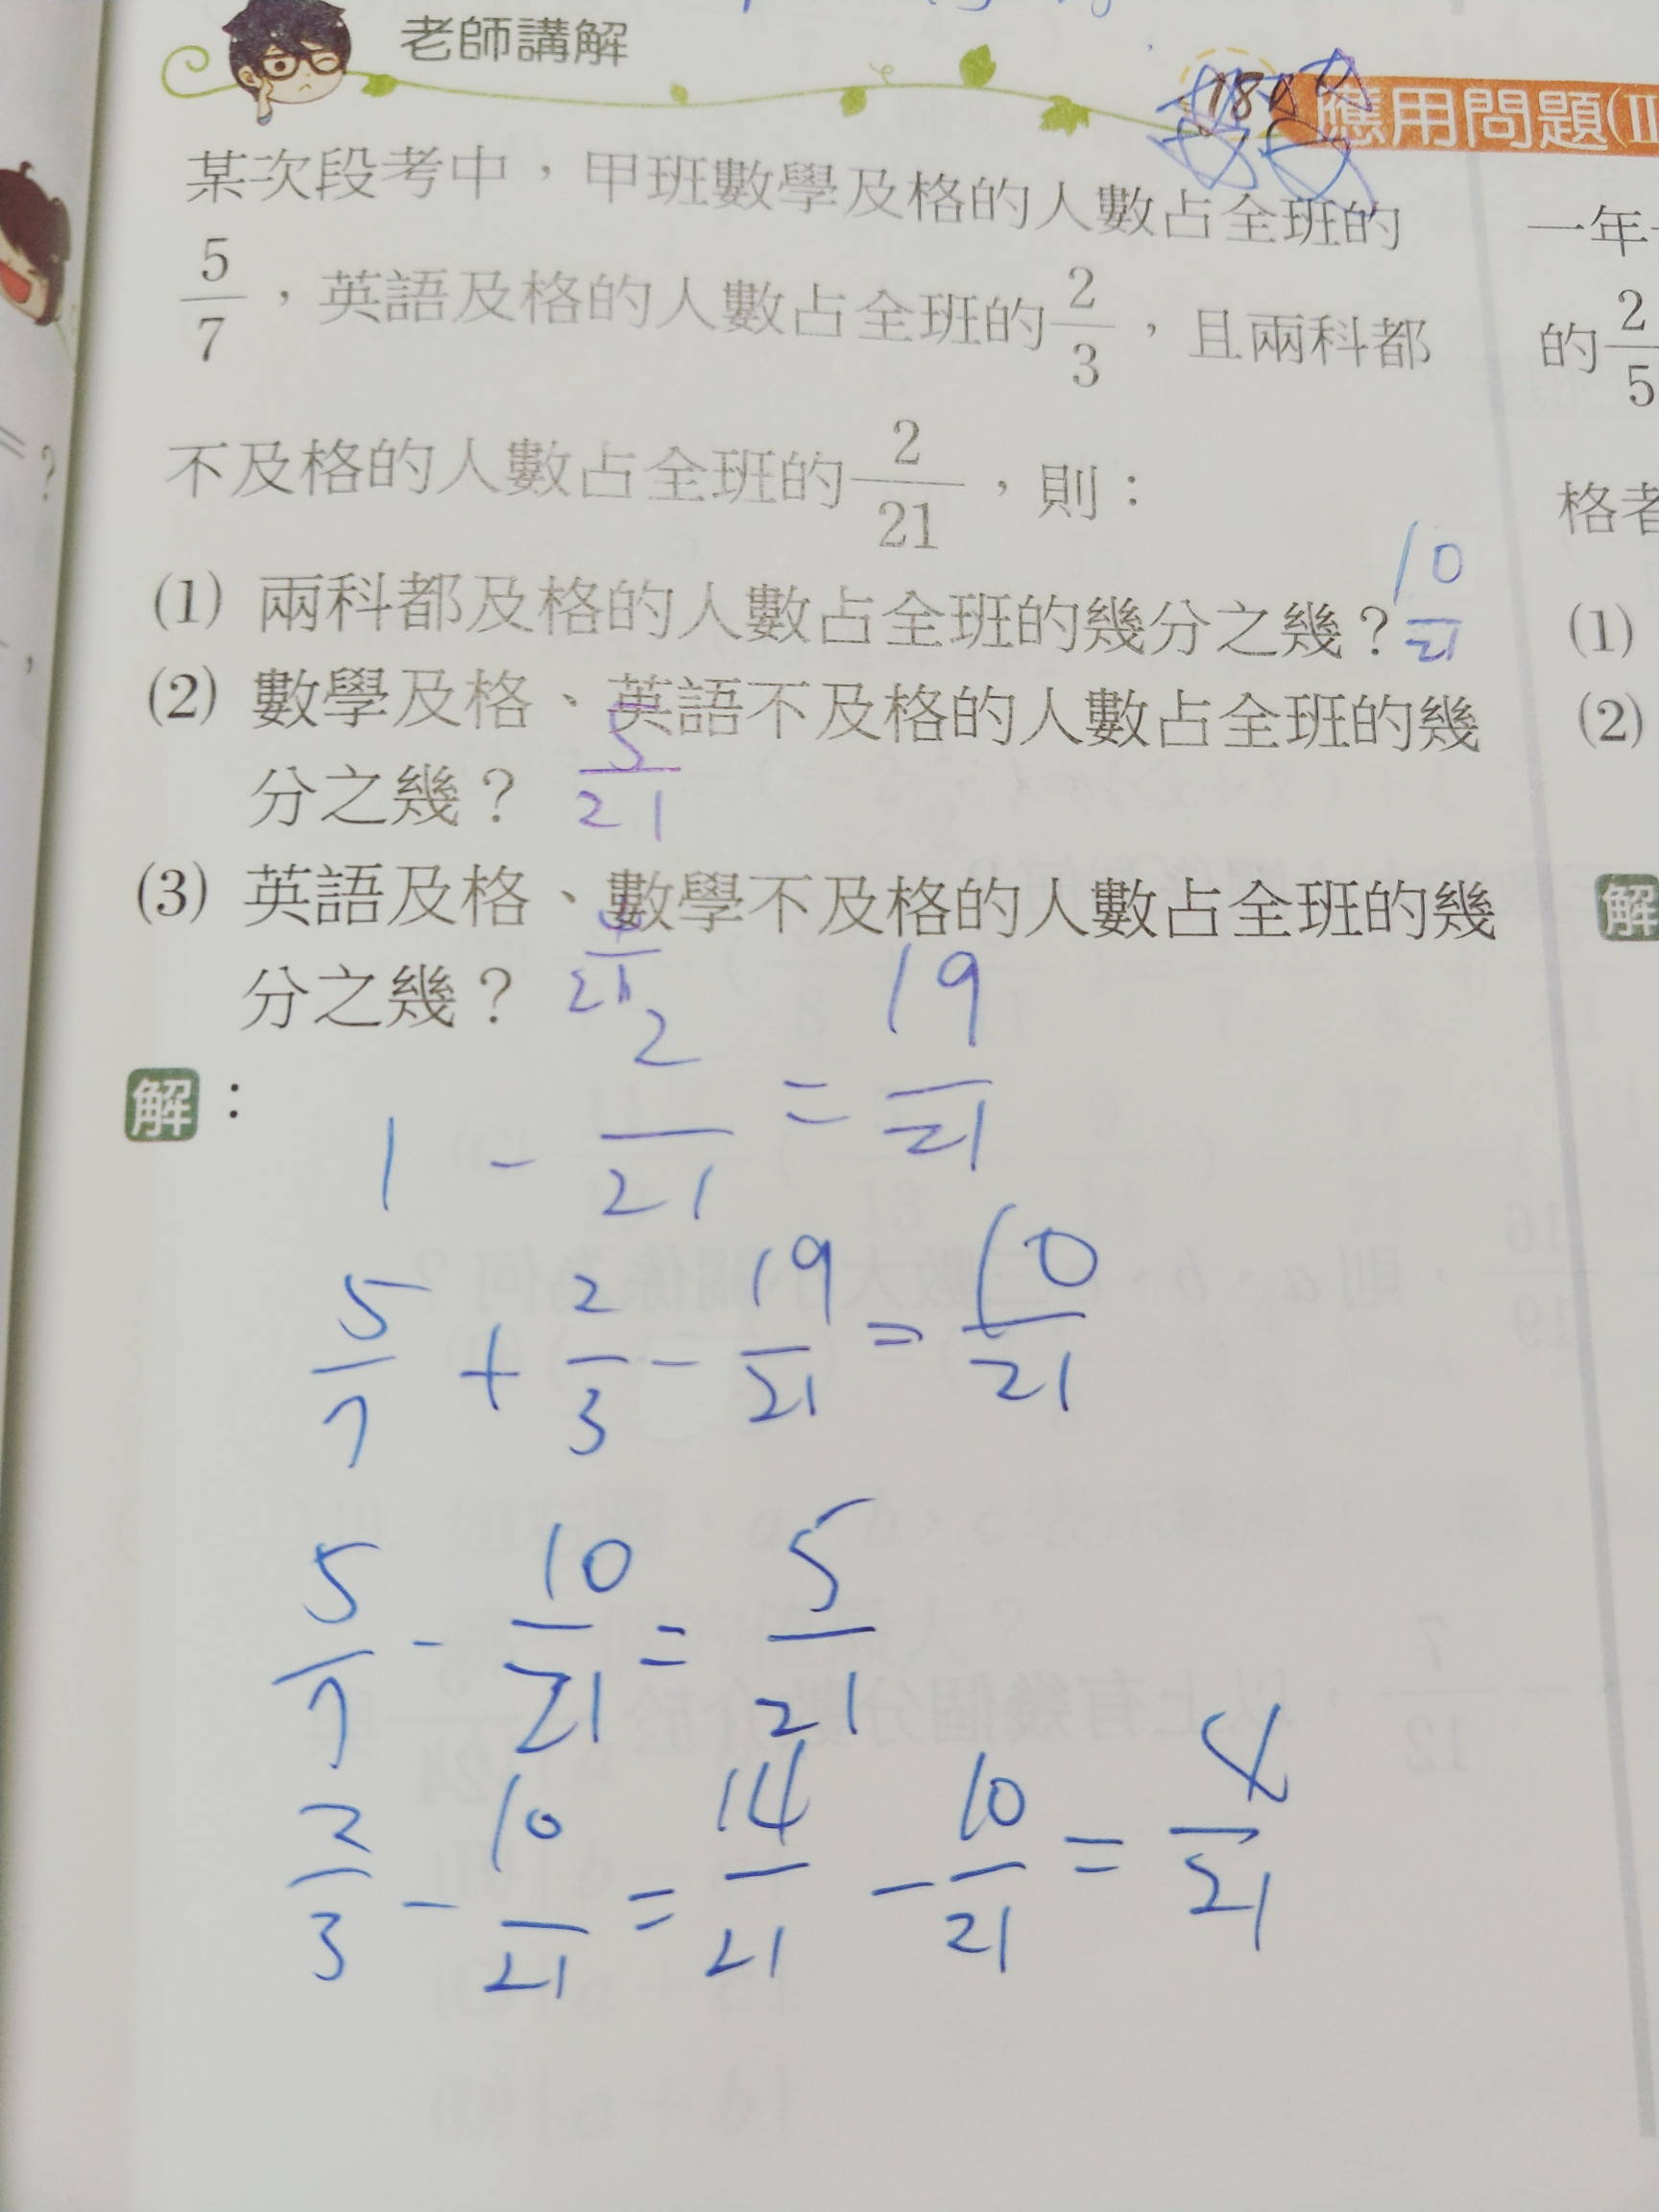 老師講解
18 應用問題(II
某次段考中，甲班數學及格的人數占全班的
5/7，英語及格的人數占全班的2/3，且兩科都
不及格的人數占全班的2/21，則：
(1) 兩科都及格的人數占全班的幾分之幾？10/21
(2) 數學及格、英語不及格的人數占全班的幾
分之幾？ 5/21
(3) 英語及格、數學不及格的人數占全班的幾
分之幾？ 4/21
解：
1 - 2/21 = 19/21
5/7 + 2/3 - 19/21 = 10/21
5/7 - 10/21 = 5/21
2/3 - 10/21 = 14/21 - 10/21 = 4/21
一年
的2/5
格者
(1)
(2)
解